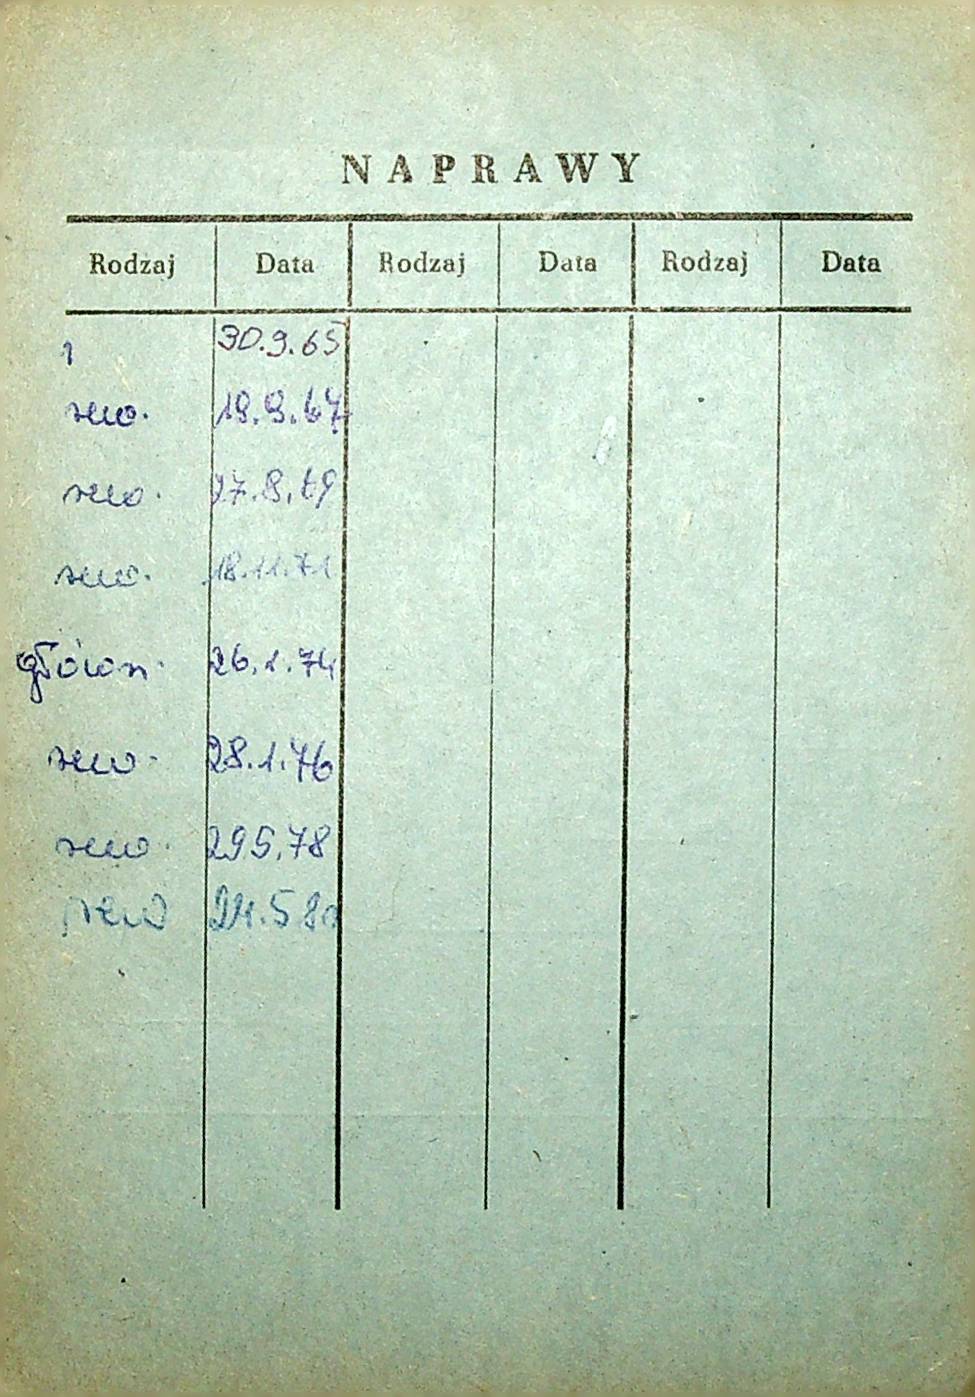 NAPRAWY
Rodzaj Data Rodzaj Data Rodzaj Data
1 30.9.65
rew. 19.9.67
rew. 27.8.69
rew. 18.11.71
główn. 26.1.74
rew. 28.1.76
rew. 295.78
rew 24.5